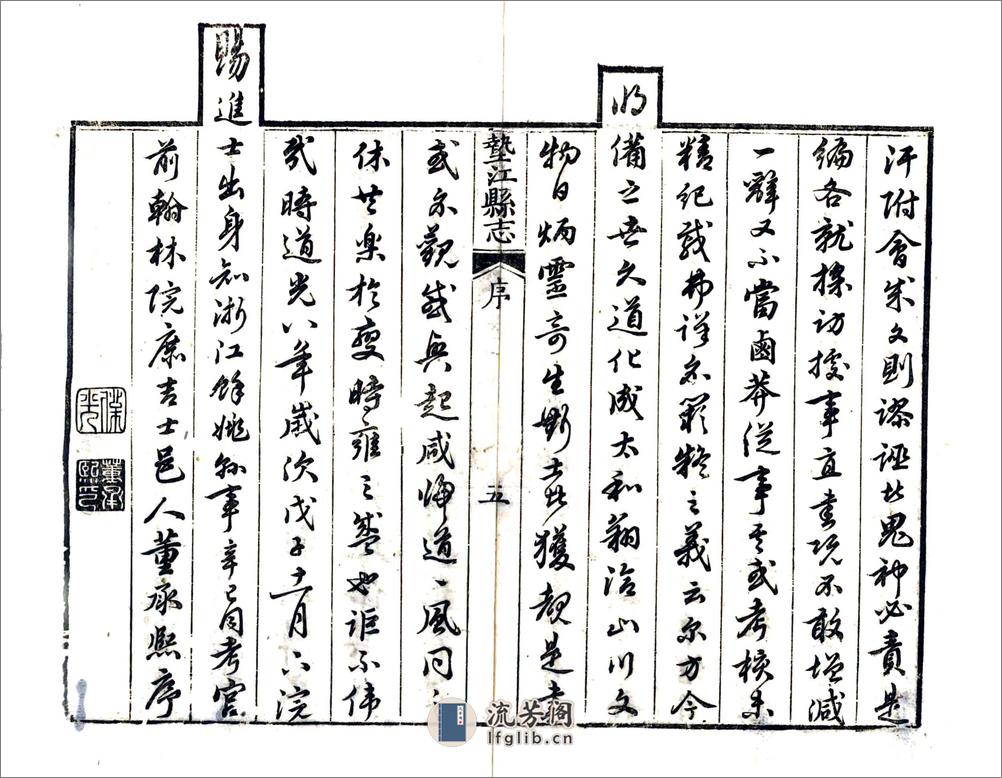 汗附會成文則謬誣此鬼神必責是
編各就採訪據事直書既不敢增減
一辭又不當鹵莽從事其或考核未
精紀載弗詳亦闕疑之義云尔方今
明備之世久道化成太和翔洽山川文
物日炳靈奇生斯土者獲覩是書
墊江縣志 序 五
或亦觀感興起咸歸道一風同之
休共樂於變時雍之盛也詎不偉
哉時道光八年歲次戊子十一月下浣
賜進士出身知浙江餘姚縣事辛巳同考官
前翰林院庶吉士邑人董承熙序
董承熙印
流芳閣
lfglib.cn